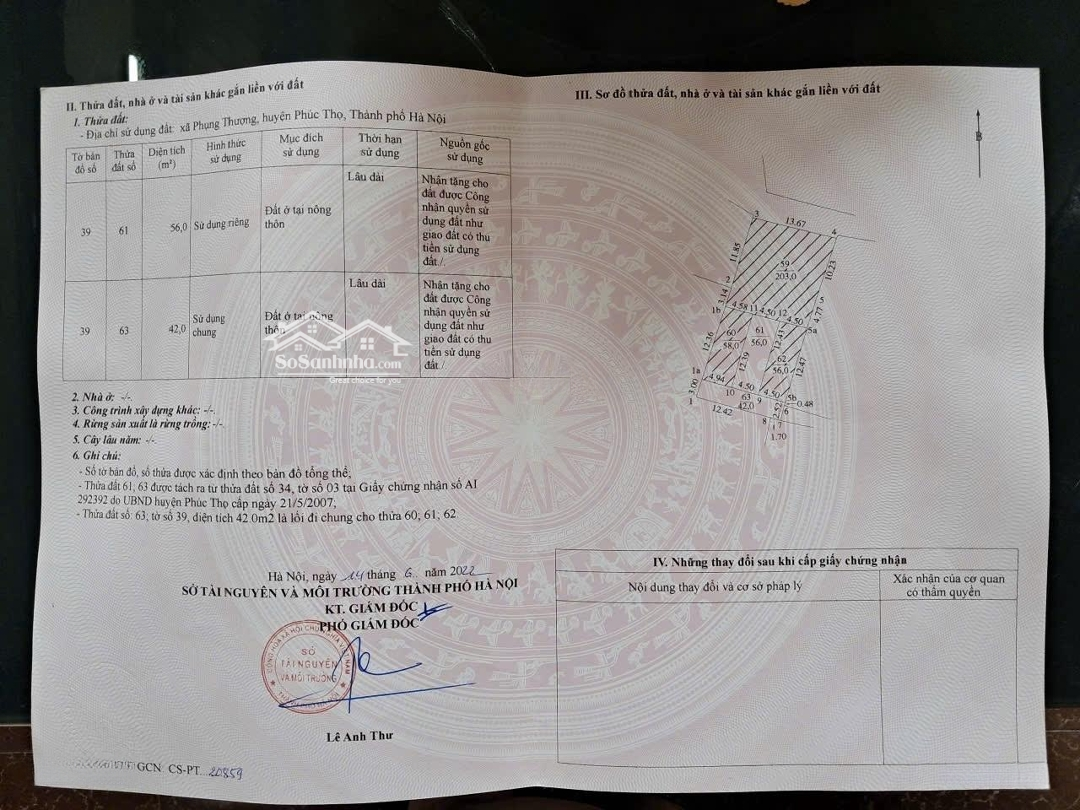 II. Thửa đất, nhà ở và tài sản khác gắn liền với đất
1. Thửa đất:
- Địa chỉ sử dụng đất: xã Phụng Thượng, huyện Phúc Thọ, Thành phố Hà Nội
Tờ bản đồ số
Thửa đất số
Diện tích (m²)
Hình thức sử dụng
Mục đích sử dụng
Thời hạn sử dụng
Nguồn gốc sử dụng
39
61
56,0
Sử dụng riêng
Đất ở tại nông thôn
Lâu dài
Nhận tặng cho
đất được Công
nhận quyền sử
dụng đất như
giao đất có thu
tiền sử dụng
đất./.
39
63
42,0
Sử dụng chung
Đất ở tại nông thôn
Lâu dài
Nhận tặng cho
đất được Công
nhận quyền sử
dụng đất như
giao đất có thu
tiền sử dụng
đất./
SoSanhnha.com
Great choice for you
2. Nhà ở: -/-.
3. Công trình xây dựng khác: -/-.
4. Rừng sản xuất là rừng trồng: -/-.
5. Cây lâu năm: -/-.
6. Ghi chú:
- Số tờ bản đồ, số thửa được xác định theo bản đồ tổng thể;
- Thửa đất 61, 63 được tách ra từ thửa đất số 34, tờ số 03 tại Giấy chứng nhận số AI
292392 do UBND huyện Phúc Thọ cấp ngày 21/5/2007;
- Thửa đất số: 63; tờ số 39, diện tích 42.0m2 là lối đi chung cho thửa 60; 61; 62.
Hà Nội, ngày 14 tháng 6 năm 2022
SỞ TÀI NGUYÊN VÀ MÔI TRƯỜNG THÀNH PHỐ HÀ NỘI
KT. GIÁM ĐỐC
PHÓ GIÁM ĐỐC
SỞ
TÀI NGUYÊN
VÀ MÔI TRƯỜNG
Lê Anh Thư
GCN: CS-PT 20859
III. Sơ đồ thửa đất, nhà ở và tài sản khác gắn liền với đất
B
3
13.67
4
11.85
59
203,0
10.23
2
3.14
5
4.77
1b
4.58
11
4.50
12
4.50
5a
12.36
60
58,0
61
56,0
12.41
12.39
62
56,0
12.47
1a
4.94
4.50
4.50
5b
3.00
10
63
42,0
9
2.52
0.48
6
1
12.42
8
7
1.70
IV. Những thay đổi sau khi cấp giấy chứng nhận
Nội dung thay đổi và cơ sở pháp lý
Xác nhận của cơ quan
có thẩm quyền